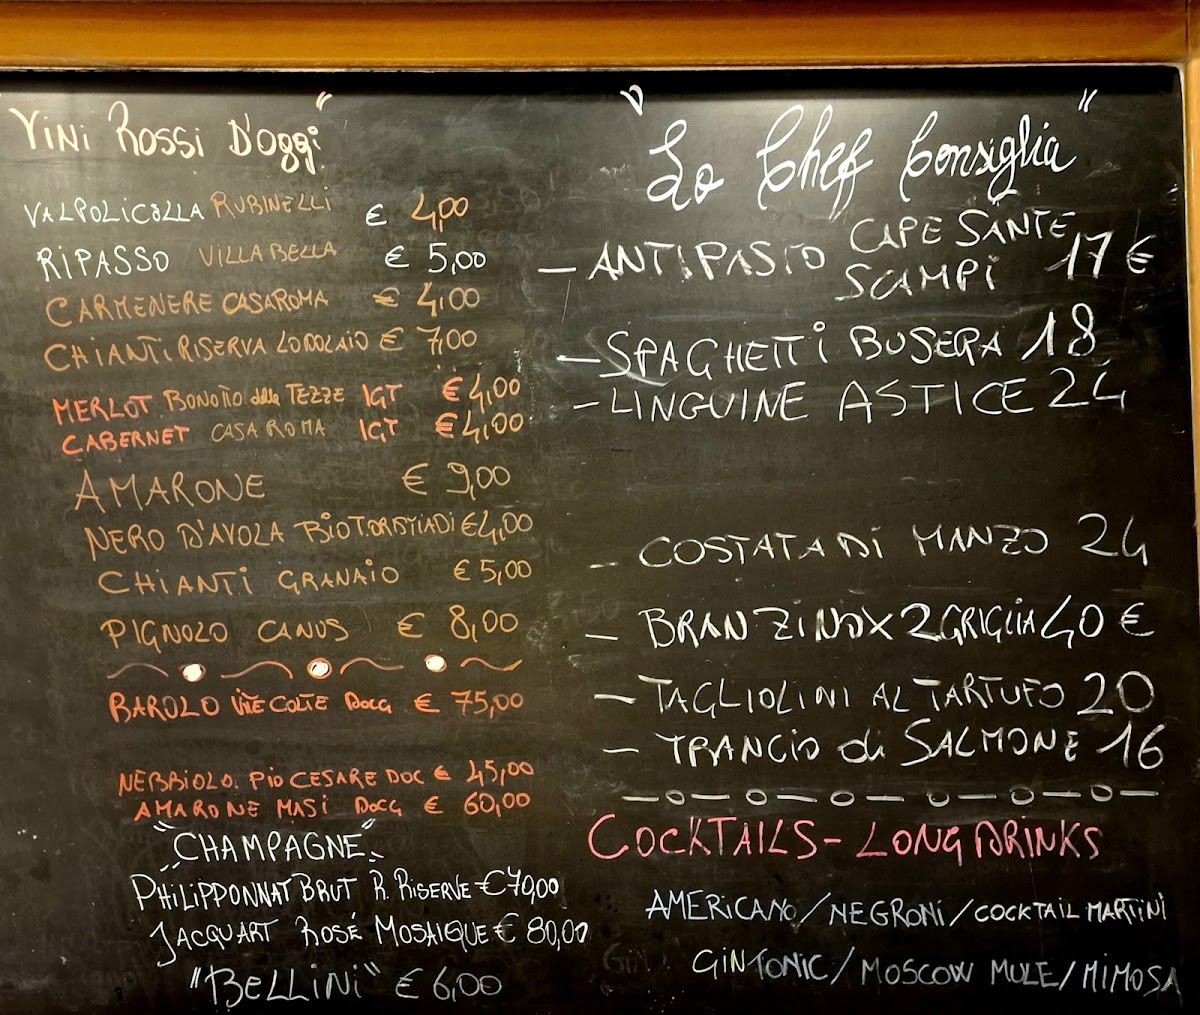 Vini Rossi D'oggi"
VALPOLICELLA RUBINELLI € 4,00
RIPASSO VILLABELLA € 5,00
CARMENERE CASAROMA € 4,00
CHIANTI RISERVA LODOLAIO € 7,00
MERLOT BONOTTO delle TEZZE IGT € 4,00
CABERNET CASA ROMA IGT € 4,00
AMARONE € 9,00
NERO D'AVOLA BIO € 4,00
CHIANTI GRANAIO € 5,00
PIGNOLO CANUS € 8,00
BAROLO VITE COLTE DOCG € 75,00
NEBBIOLO. PIO CESARE DOC € 45,00
AMARONE MASI DOCG € 60,00
"CHAMPAGNE"
PHILIPPONNAT BRUT R. RISERVE € 70,00
JACQUART ROSÉ MOSAIQUE € 80,00
"BELLINI" € 6,00
"Lo Chef Consiglia"
- ANTIPASTO CAPE SANTE SCAMPI 17 €
- SPAGHETTI BUSERA 18
- LINGUINE ASTICE 24
- COSTATA DI MANZO 24
- BRANZINO X 2 GRIGLIA 40 €
- TAGLIOLINI AL TARTUFO 20
- TRANCIO di SALMONE 16
COCKTAILS - LONG DRINKS
AMERICANO / NEGRONI / COCKTAIL MARTINI
GIN TONIC / MOSCOW MULE / MIMOSA